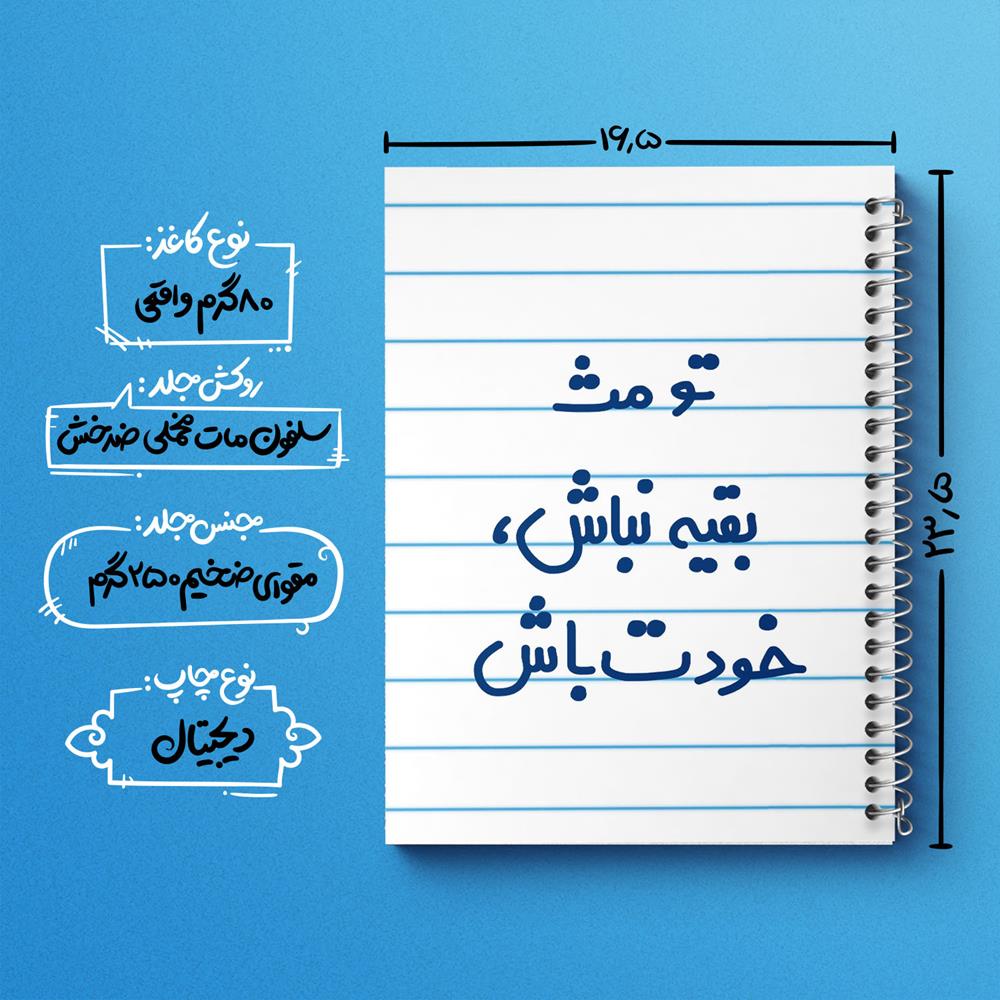 ۱۶٫۵
۲۳٫۵
نوع کاغذ:
۸۰گرم واقعی
روکش جلد:
سلفون مات مخملی ضدخش
جنس جلد:
مقوای ضخیم ۲۵۰گرم
نوع چاپ:
دیجیتال
تو مث
بقیه نباش،
خودت باش